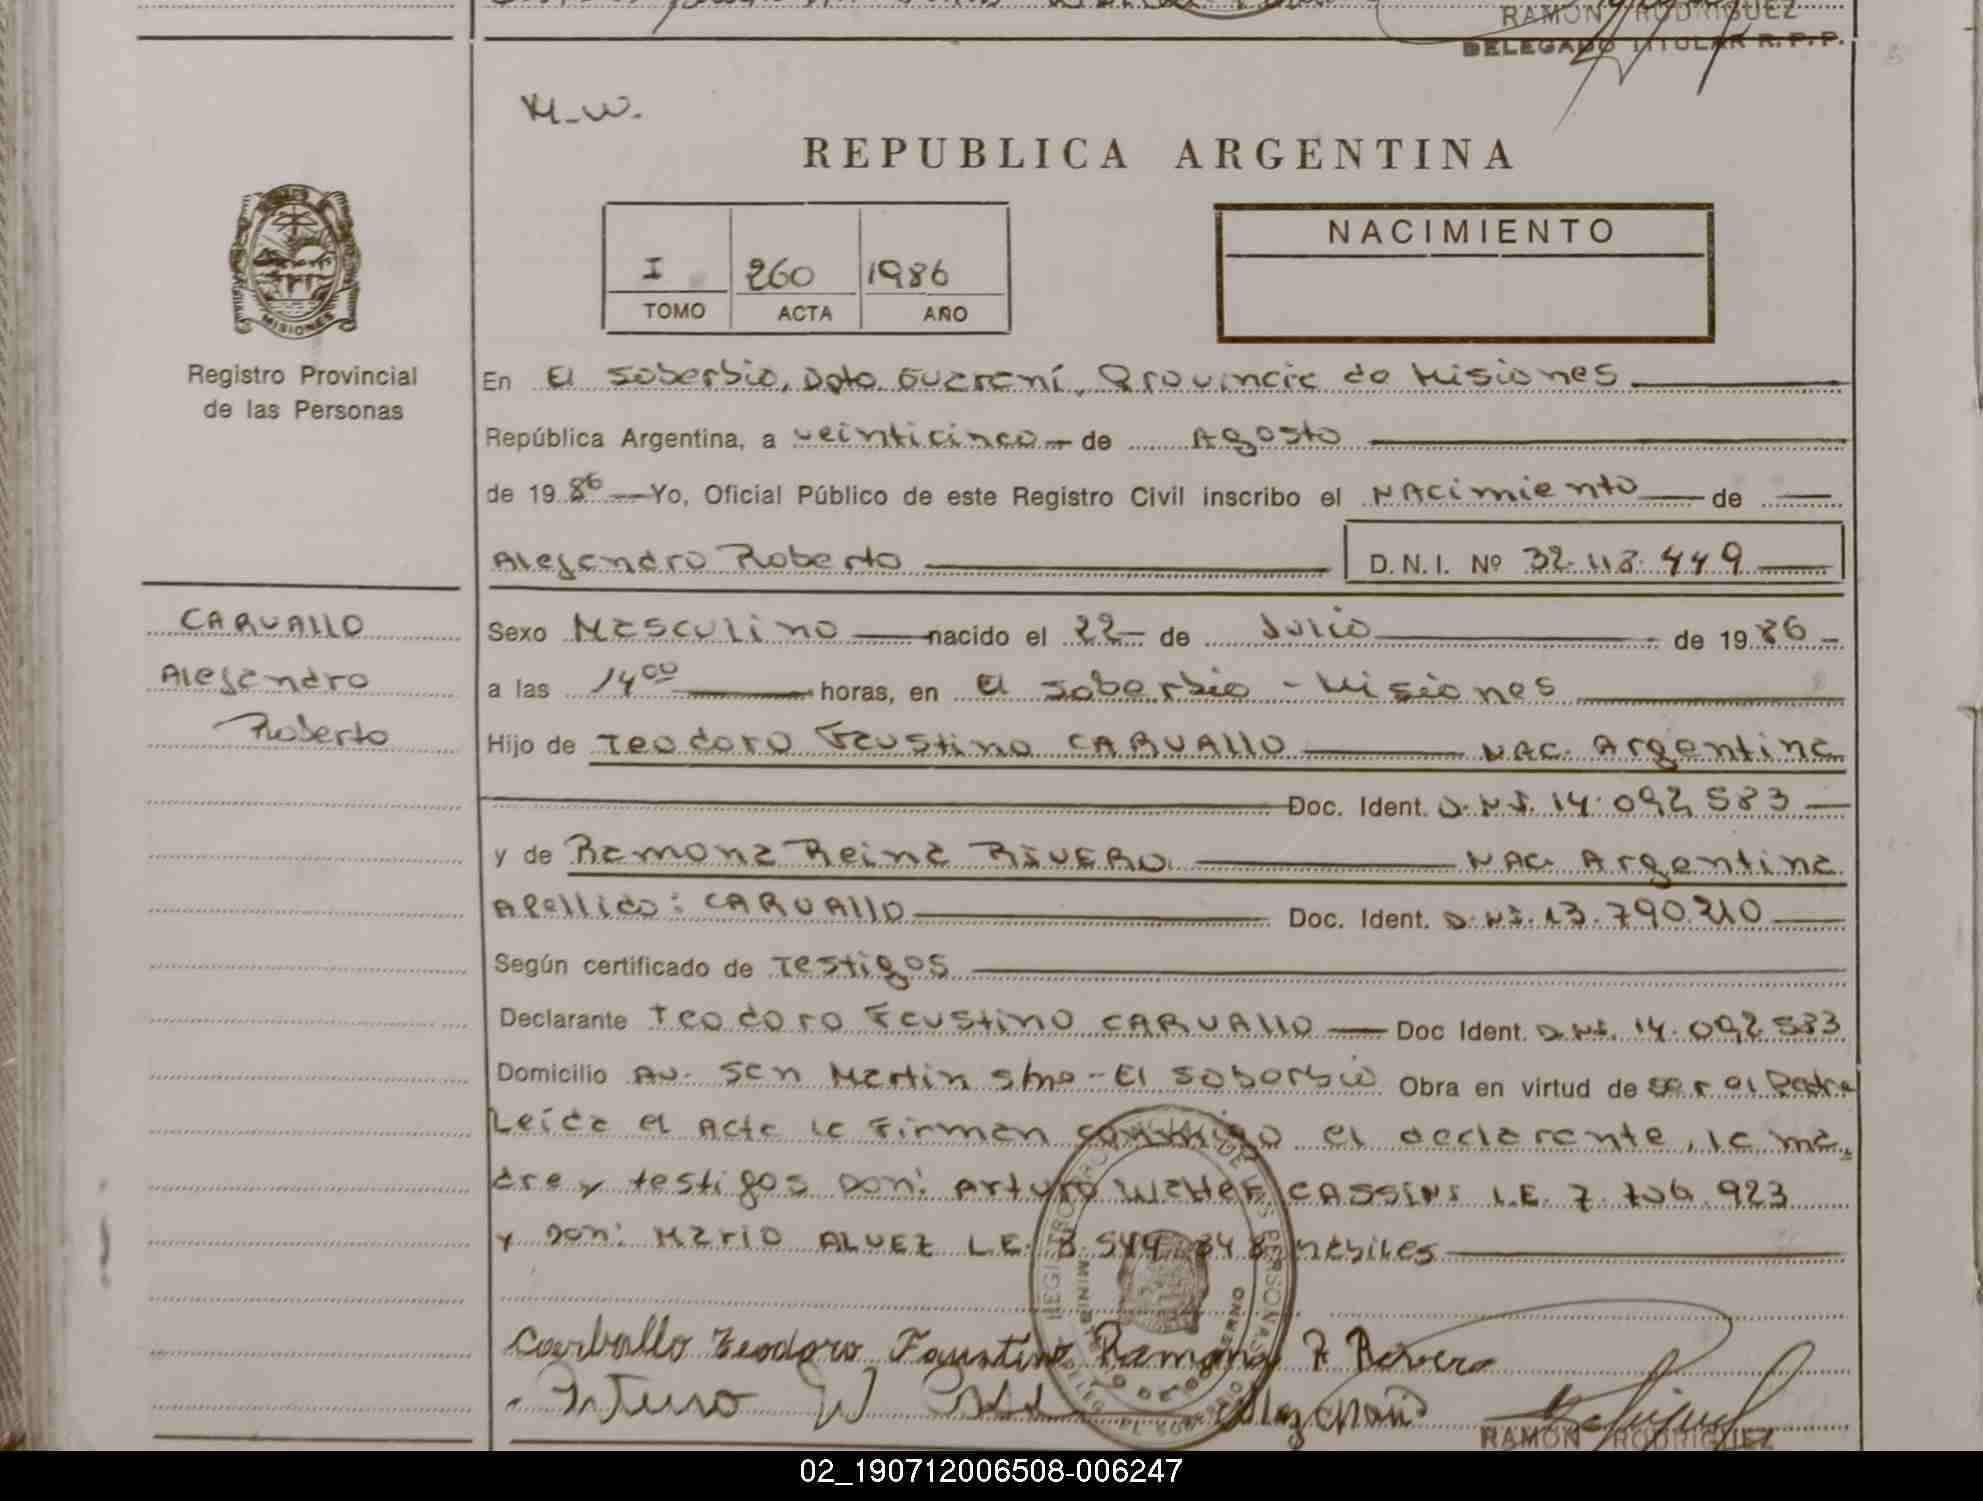 RAMON RODRIGUEZ
DELEGADO TITULAR R.P.P.
M.W.
REPUBLICA ARGENTINA
NACIMIENTO
I 260 1986
TOMO ACTA AÑO
MISIONES
Registro Provincial
de las Personas
En El Soberbio, Dpto Guaraní, Provincia de Misiones
República Argentina, a veinticinco de Agosto
de 1986 Yo, Oficial Público de este Registro Civil inscribo el Nacimiento de
Alejandro Roberto D.N.I. Nº 32.118.449
CARVALLO
Alejandro
Roberto
Sexo Masculino nacido el 22 de Julio de 1986
a las 14 00 horas, en El Soberbio - Misiones
Hijo de Teodoro Faustino CARVALLO NAC. Argentina
Doc. Ident. D.N.I. 14.092.583
y de Ramona Reina RIVERO NAC. Argentina
Apellido: CARVALLO Doc. Ident. D.N.I. 13.790.210
Según certificado de Testigos
Declarante Teodoro Faustino CARVALLO Doc Ident. D.N.I. 14.092.583
Domicilio Av. San Martin s/no - El Soberbio Obra en virtud de ser el Padre
Leída el Acta la Firman conmigo el declarante, la ma
dre y testigos Don: Arturo Walter CASSINI L.E. 7. 923
y Don: Mario ALVEZ L.E. 8.544.848 habiles
Carballo Teodoro Faustino Ramona R Rivero
Arturo W
RAMON RODRIGUEZ
02_190712006508-006247